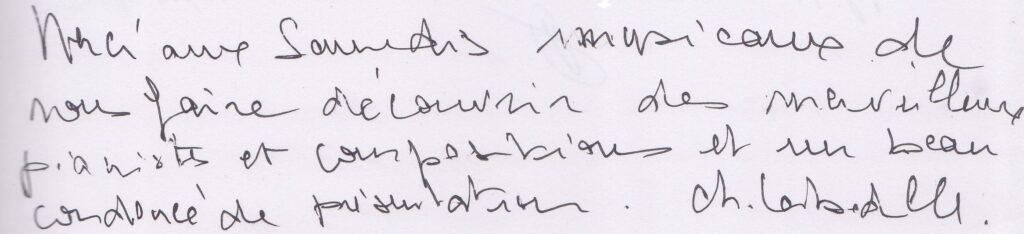 Merci aux Samedis musicaux de
nous faire découvrir des merveilleux
pianistes et compositions et un beau
condensé de présentation.